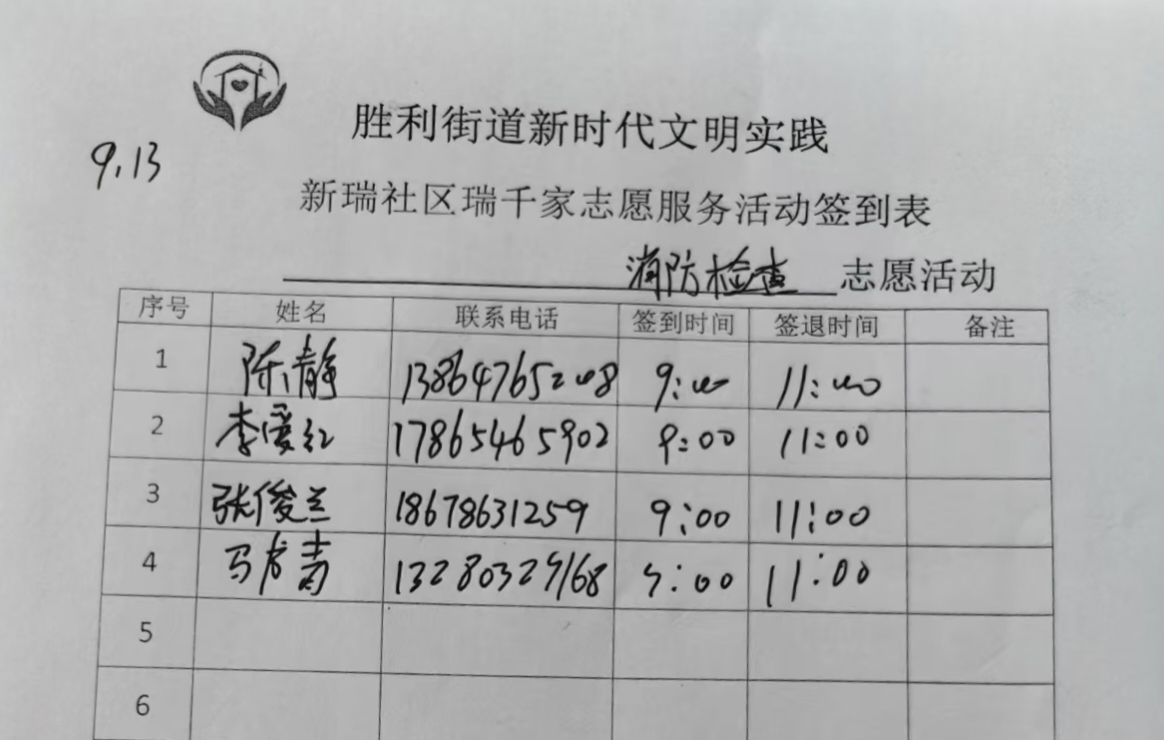 胜利街道新时代文明实践
9.13
新瑞社区瑞千家志愿服务活动签到表
消防检查 志愿活动
序号 姓名 联系电话 签到时间 签退时间 备注
1 陈静 13864765208 9:00 11:00
2 李爱红 17865465902 9:00 11:00
3 张俊兰 18678631259 9:00 11:00
4 9:00 11:00
5
6